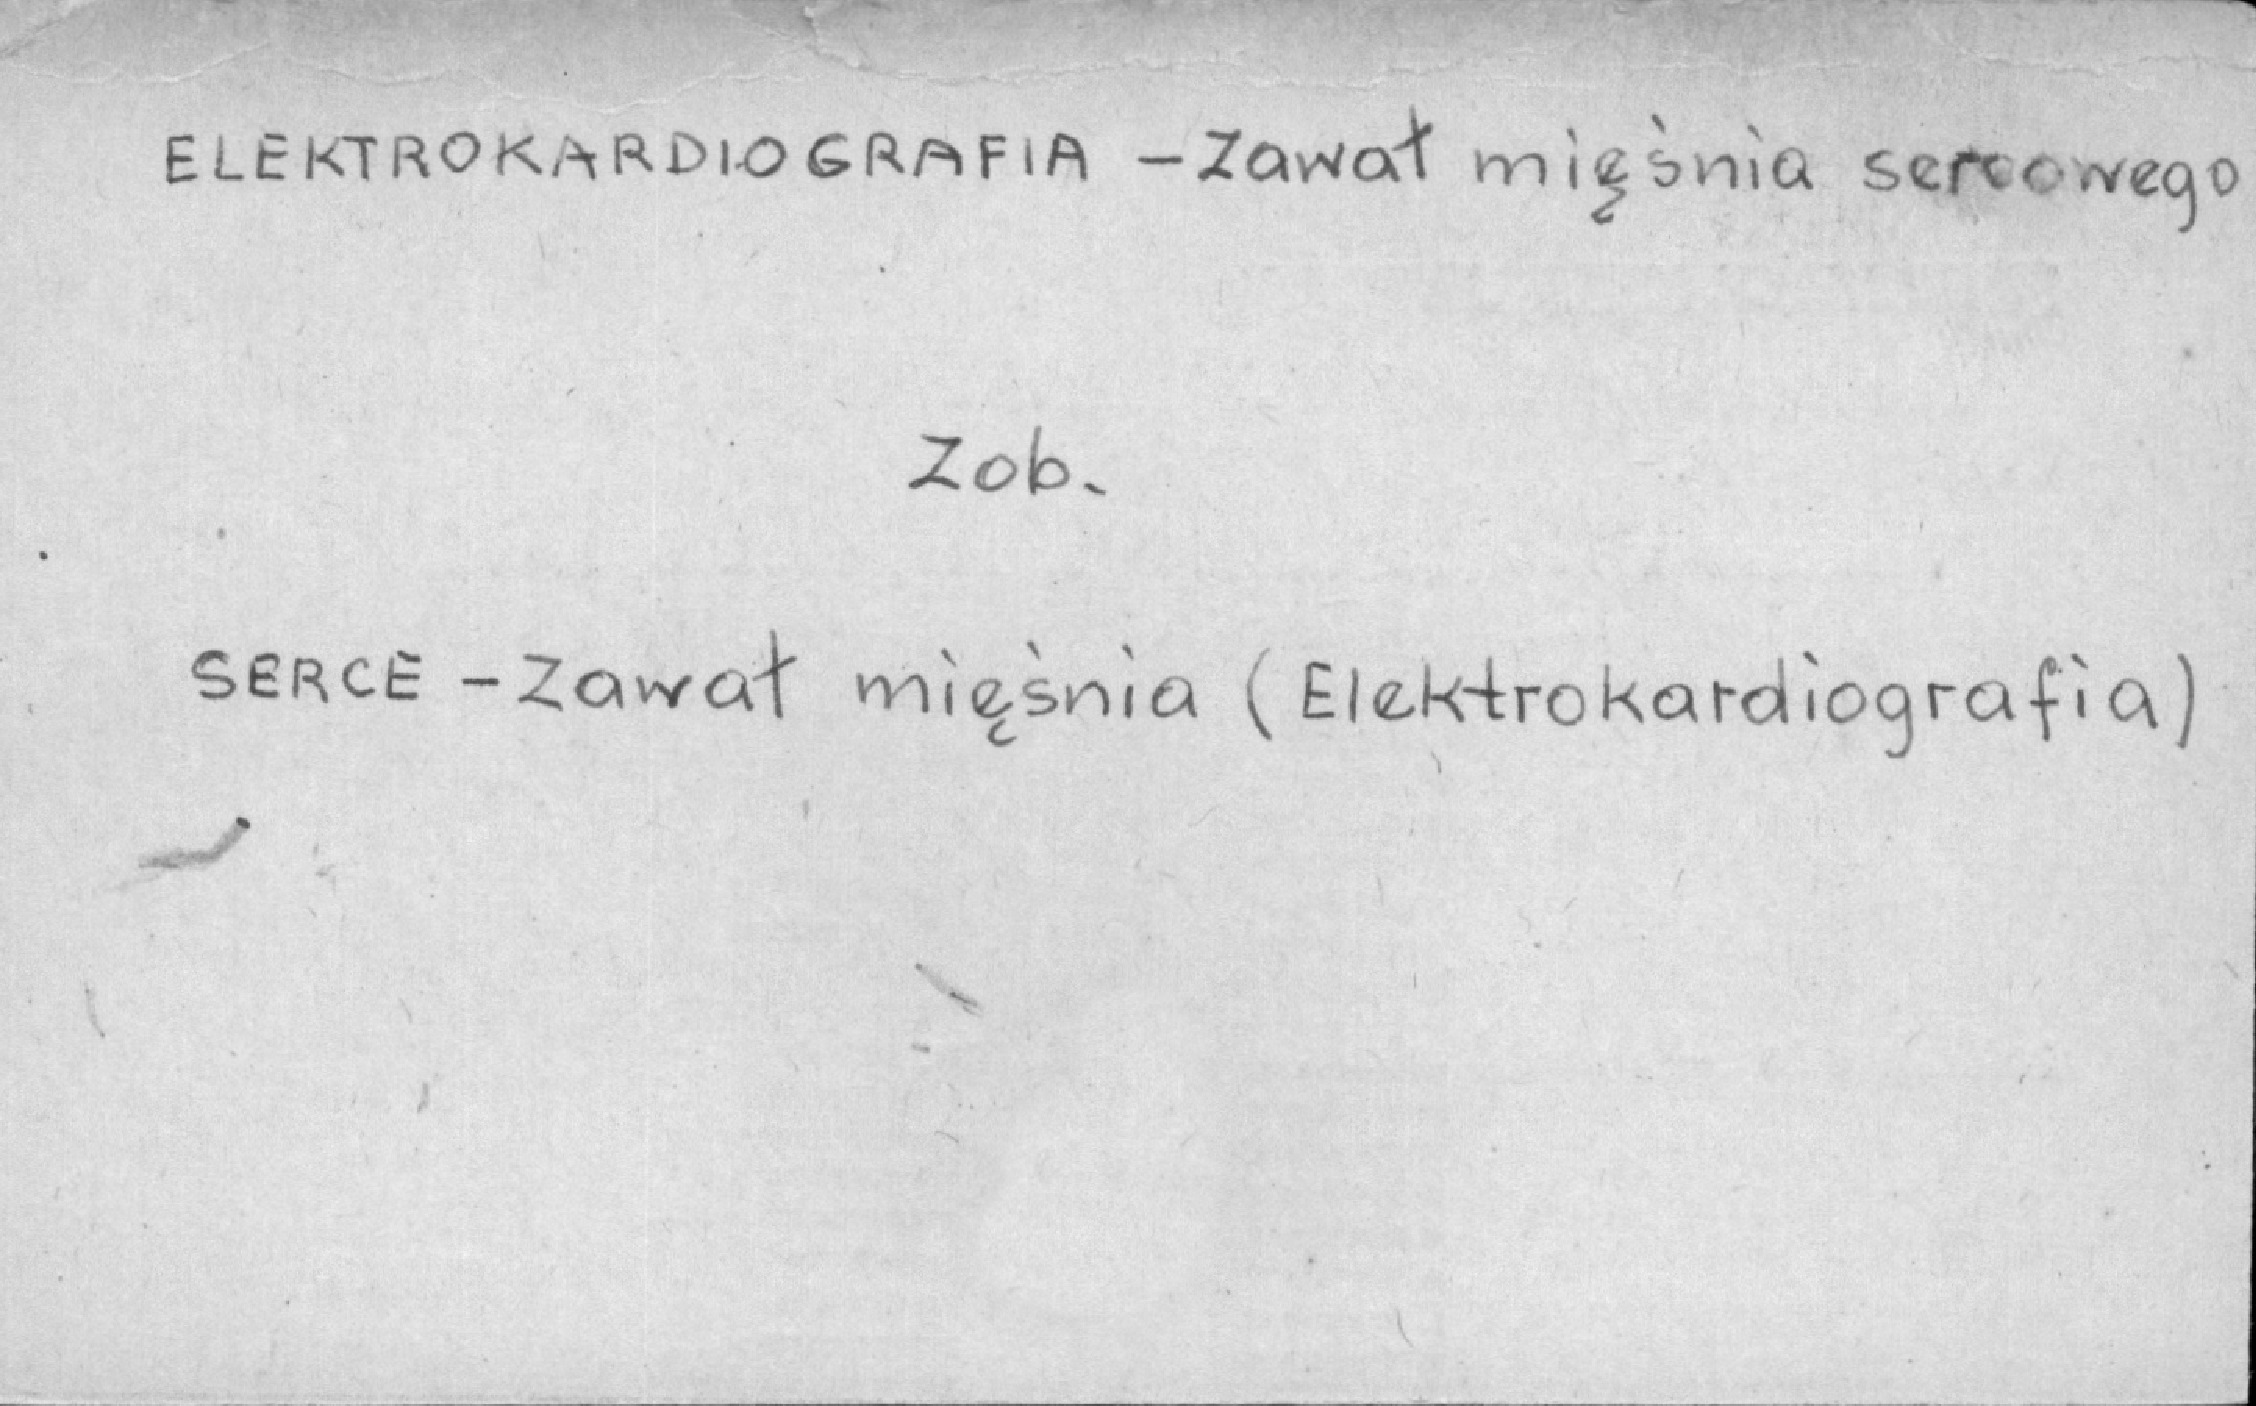 ELEKTROKARDIOGRAFIA – Zawał mięśnia sercowego
Zob.
SERCE – Zawał mięśnia (Elektrokardiografia)